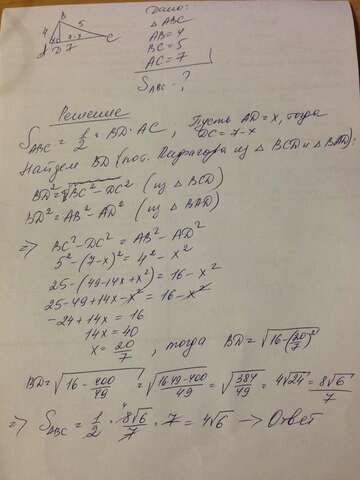 B
4 5
x 7-x
A D 7 C
Дано:
△ ABC
AB=4
BC=5
AC=7
S_ABC - ?
Решение
S_ABC = 1/2 · BD · AC ; Пусть AD=x, тогда
DC = 7-x
Найдем BD (по т. Пифагора из △ BCD и △ BAD):
BD² = √BC² - DC² (из △ BCD)
BD² = AB² - AD² (из △ BAD)
⇒ BC² - DC² = AB² - AD²
5² - (7-x)² = 4² - x²
25 - (49-14x+x²) = 16 - x²
25 - 49 + 14x - x² = 16 - x²
-24 + 14x = 16
14x = 40
x = 20/7 , тогда BD = √16-(20/7)²
BD = √16 - 400/49 = √(16·49-400)/49 = √384/49 = 4√24 = 8√6/7
⇒ S_ABC = 1/2 · 8√6/7 · 7 = 4√6 → Ответ